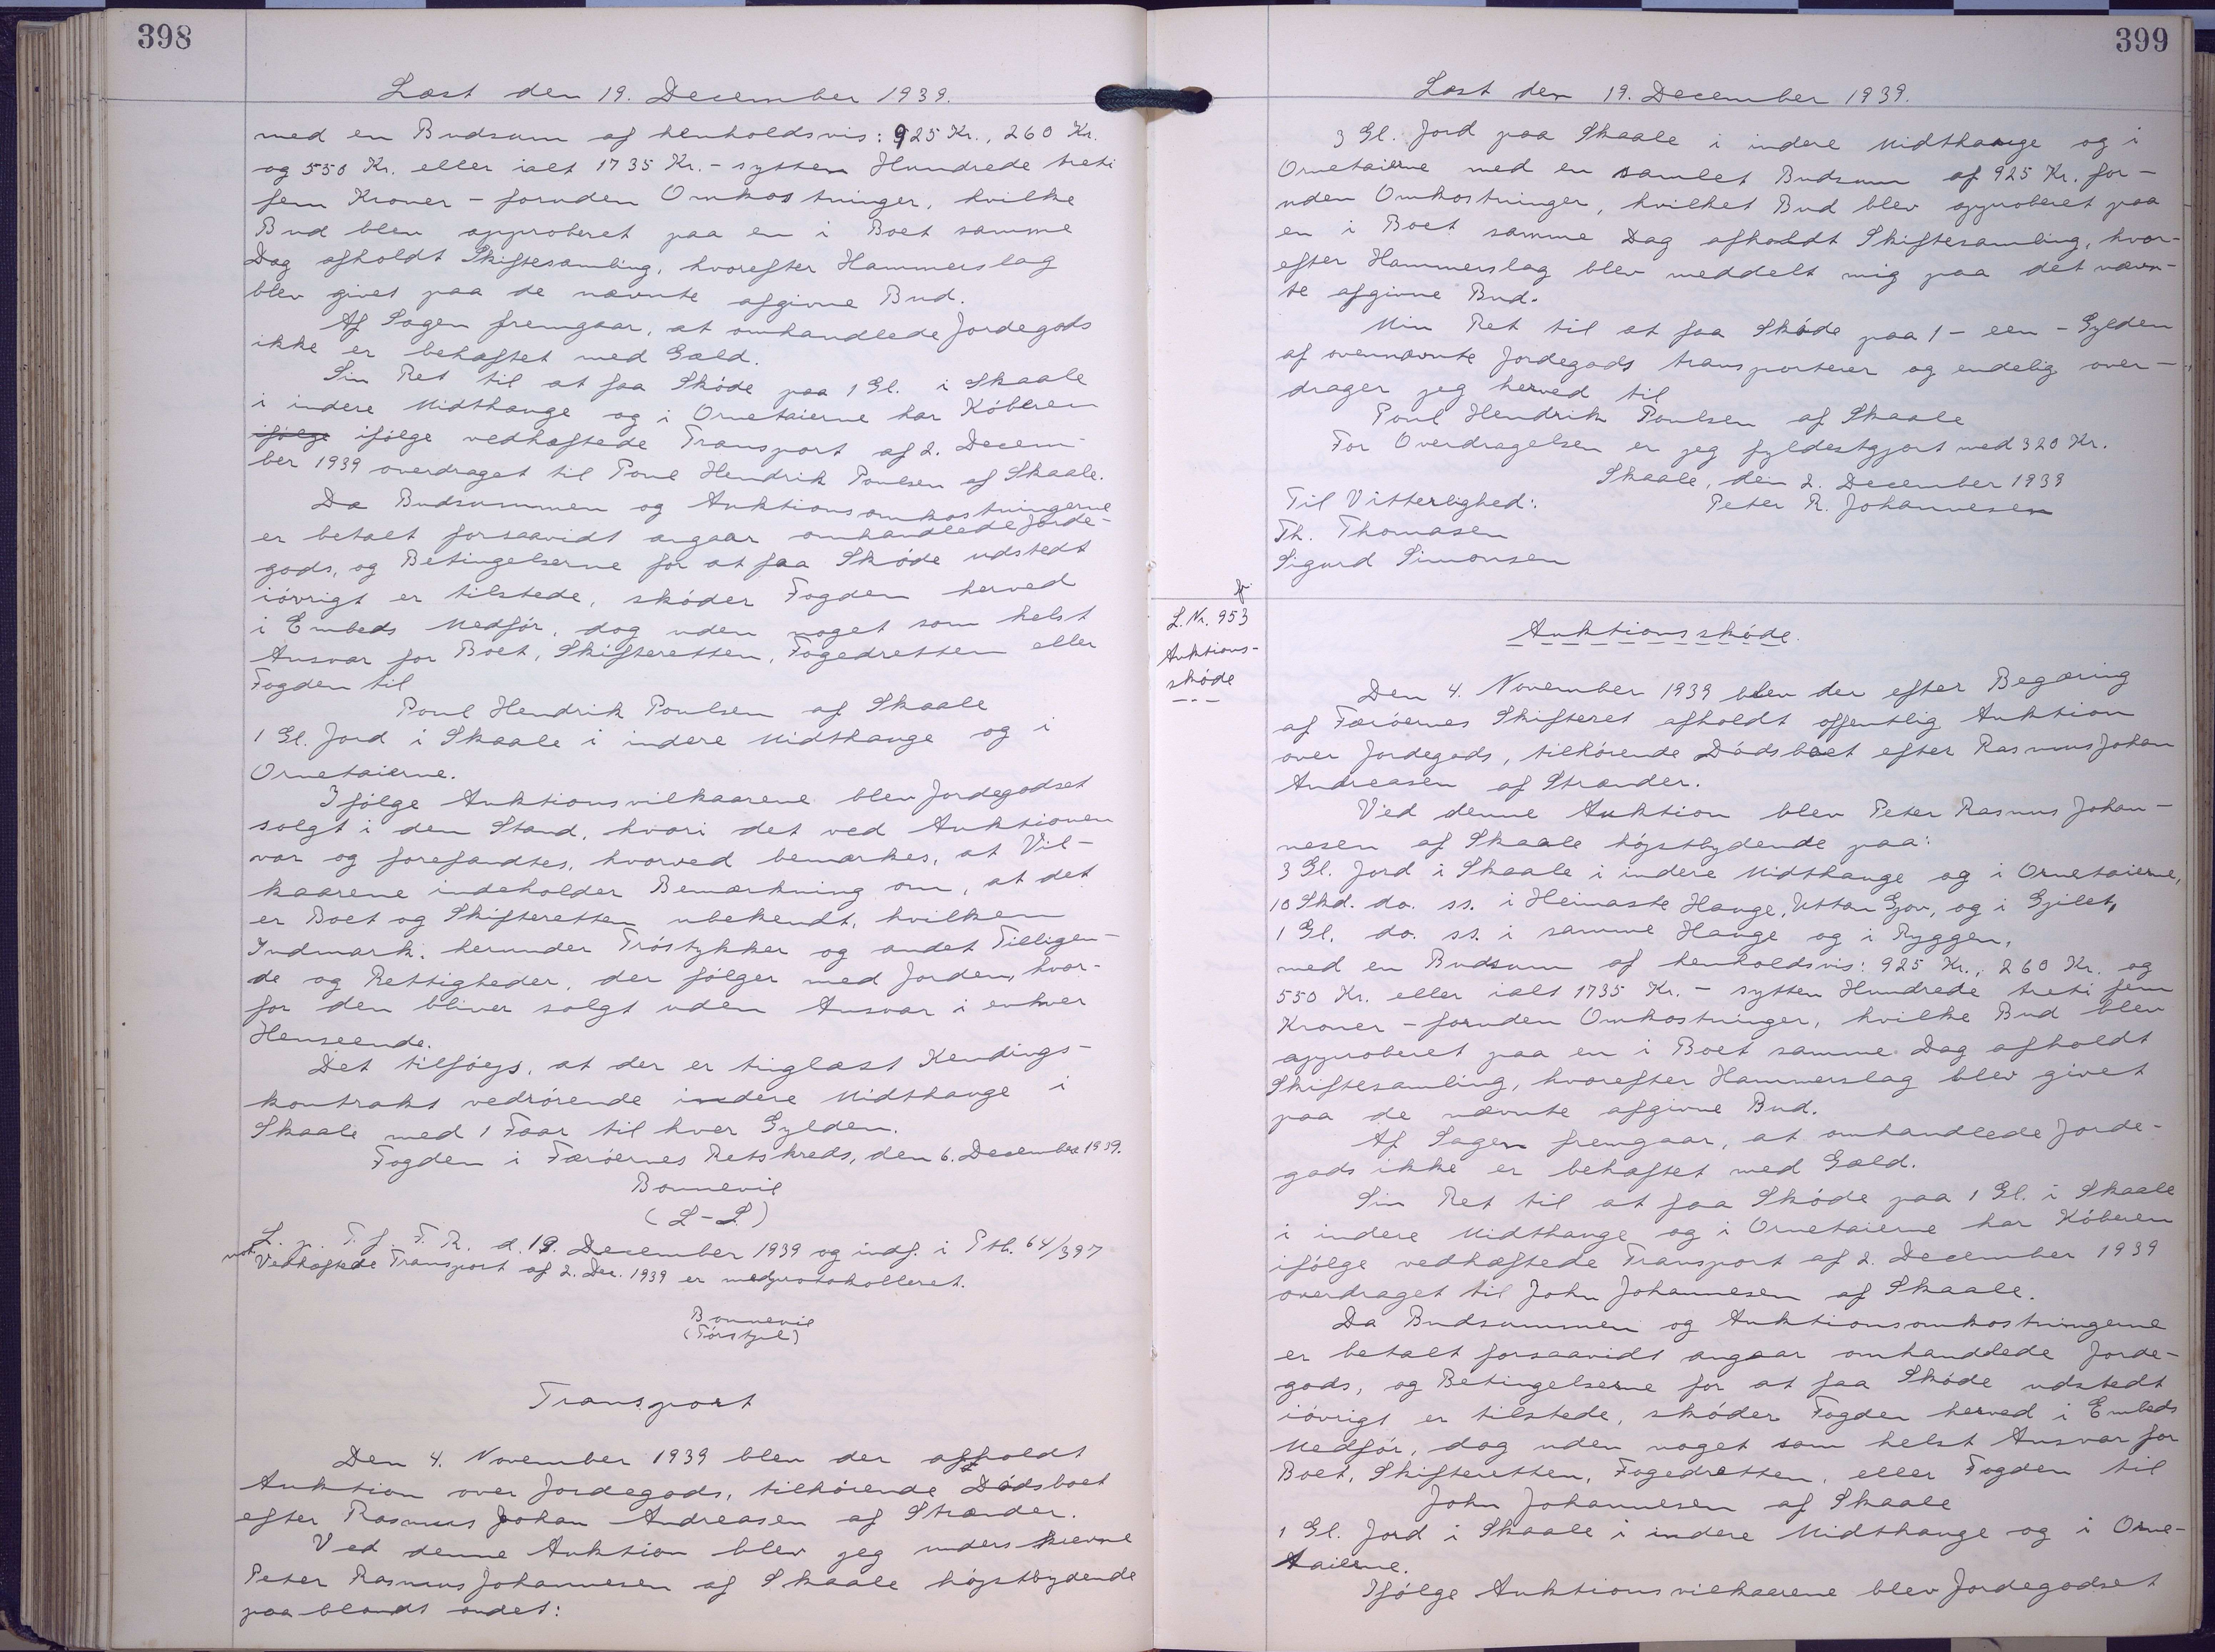 398
Læst den 19. December 1939.
med en Budsum af henholdsvis: 925 Kr., 260 Kr.
og 550 Kr. eller ialt 1735 Kr. - sytten Hundrede treti
fem Kroner - foruden Omkostninger, hvilke
Bud blev approberet paa en i Boet samme
Dag afholdt Skiftesamling, hvorefter Hammerslag
blev givet paa de nævnte afgivne Bud.
Af Sagen fremgaar, at omhandlede Jordegods
ikke er behæftet med Gæld.
Sin Ret til at faa Skóde paa 1 Gl. i Skaale
i indere Midthauge og i Ornetaierne har Kóberen
ifólge ifólge vedhæftede Transport af 2. Decem-
ber 1939 overdraget til Poul Hendrik Poulsen af Skaale.
Da Budsummen og Auktionsomkostningerne
er betalt forsaavidt angaar omhandlede Jorde-
gods, og Betingelserne for at faa Skóde udstedt
ióvrigt er tilstede, skóder Fogden herved
i Embeds Medfór, dog uden noget som helst
Ansvar for Boet, Skifteretten, Fogedretten eller
Fogden til
Poul Hendrik Poulsen af Skaale
1 Gl. Jord i Skaale i indere Midthauge og i
Ornetaierne.
Ifólge Auktionsvilkaarene blev Jordegodset
solgt i den Stand, hvori det ved Auktionen
var og forefandtes, hvorved bemærkes, at Vil-
kaarene indeholder Bemærkning om, at det
er Boet og Skifteretten ubekendt, hvilken
Indmark, herunder Tróstykker og andet Tilligen-
de og Rettigheder, der fólger med Jorden, hvor-
for den bliver solgt uden Ansvar i enhver
Henseende.
Det tilfójes, at der er tinglæst Kendings-
kontrakt vedrórende indere Midthauge i
Skaale med 1 Faar til hver Gylden.
Fogden i Færóernes Retskreds, den 6. December 1939.
Bonnevie
(L-S)
L. p. T. f. F. R. d. 19. December 1939 og indf. i Ptb. 64/397
not. Vedhæftede Transport af 2. Dec. 1939 er medprotokolleret.
Bonnevie
Transport
Den 4. November 1939 blev der afholdt
Auktion over Jordegods, tilhórende Dódsboet
efter Rasmus Johan Andreasen af Strænder.
Ved denne Auktion blev jeg underskrevne
Peter Rasmus Johannesen af Skaale hójstbydende
paa blandt andet:
399
Læst den 19. December 1939.
3 Gl. Jord paa Skaale i indere Midthauge og i
Ornetaierne med en samlet Budsum af 925 Kr. for-
uden Omkostninger, hvilket Bud blev approberet paa
en i Boet samme Dag afholdt Skiftesamling, hvor-
efter Hammerslag blev meddelt mig paa det nævn-
te afgivne Bud.
Min Ret til at faa Skóde paa 1 - een - Gylden
af ovennævnte Jordegods transporterer og endelig over-
drager jeg herved til
Poul Hendrik Poulsen af Skaale
For Overdragelsen er jeg fyldestgjort med 320 Kr.
Skaale, den 2. December 1939
Til Vitterlighed: Peter R. Johannesen
Th. Thomasen
Sigurd Simonsen
L. Nr. 953
Auktions-
skóde
Auktionsskóde.
Den 4. November 1939 blev der efter Begæring
af Færóernes Skifteret afholdt offentlig Auktion
over Jordegods, tilhórende Dódsboet efter Rasmus Johan
Andreasen af Strænder.
Ved denne Auktion blev Peter Rasmus Johan-
nesen af Skaale hójstbydende paa:
3 Gl. Jord i Skaale i indere Midthauge og i Ornetaierne,
10 Skd. do. ss. i Heimaste Hauge, Uttan Gjov, og i Gjilet,
1 Gl. do. ss. i samme Hauge og i Ryggen,
med en Budsum af henholdsvis: 925 Kr., 260 Kr. og
550 Kr. eller ialt 1735 Kr. - sytten Hundrede treti fem
Kroner - foruden Omkostninger, hvilke Bud blev
approberet paa en i Boet samme Dag afholdt
Skiftesamling, hvorefter Hammerslag blev givet
paa de nævnte afgivne Bud.
Af Sagen fremgaar, at omhandlede Jorde-
gods ikke er behæftet med Gæld.
Sin Ret til at faa Skóde paa 1 Gl. i Skaale
i indere Midthauge og i Ornetaierne har Kóberen
ifólge vedhæftede Transport af 2. December 1939
overdraget til John Johannesen af Skaale.
Da Budsummen og Auktionsomkostningerne
er betalt forsaavidt angaar omhandlede Jorde-
gods, og Betingelserne for at faa Skóde udstedt
ióvrigt er tilstede, skóder Fogden herved i Embeds
Medfór, dog uden noget som helst Ansvar for
Boet, Skifteretten, Fogedretten, eller Fogden til
John Johannesen af Skaale
1 Gl. Jord i Skaale i indere Midthauge og i Orne-
taierne.
Ifólge Auktionsvilkaarene blev Jordegodset